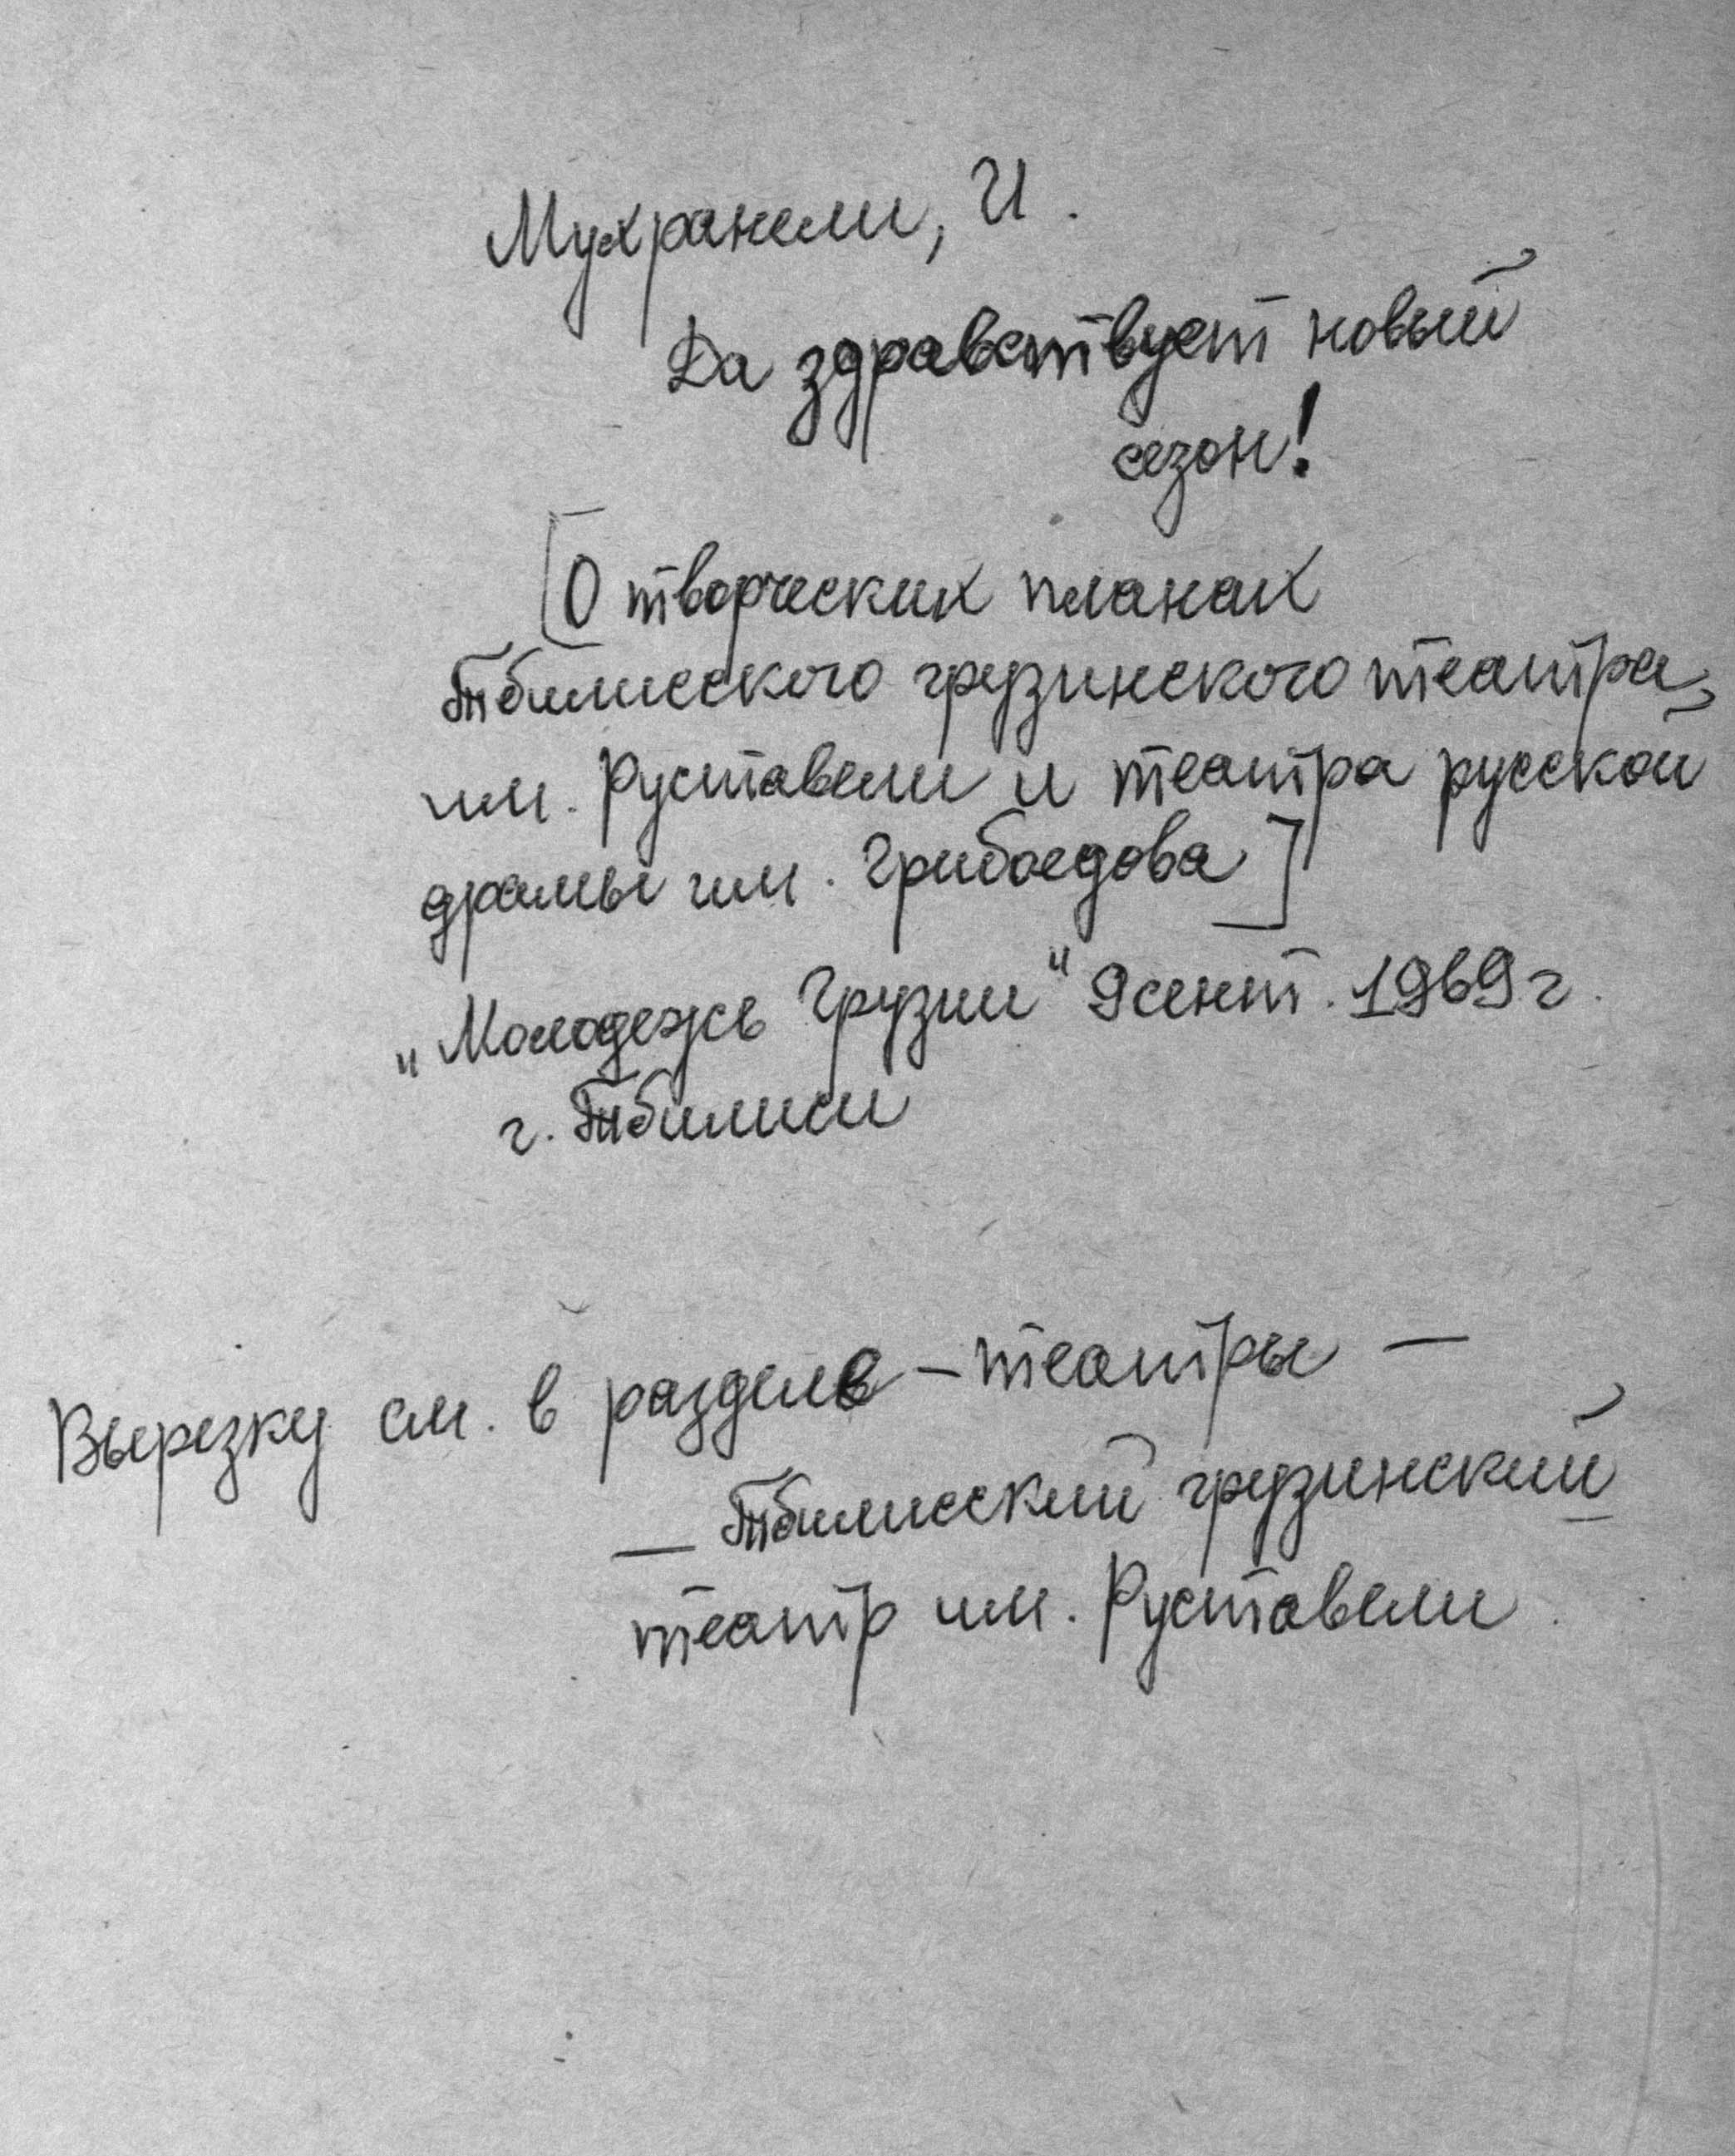 Мухранели, И.
Да здравствует новый
сезон!
[О творческих планах
Тбилисского грузинского театра
им. Руставели и театра русской
драмы им. Грибоедова]
„Молодежь Грузии" 9 сент. 1969 г.
г. Тбилиси
Вырезку см. в разделе - театры -
- Тбилисский грузинский
театр им. Руставели